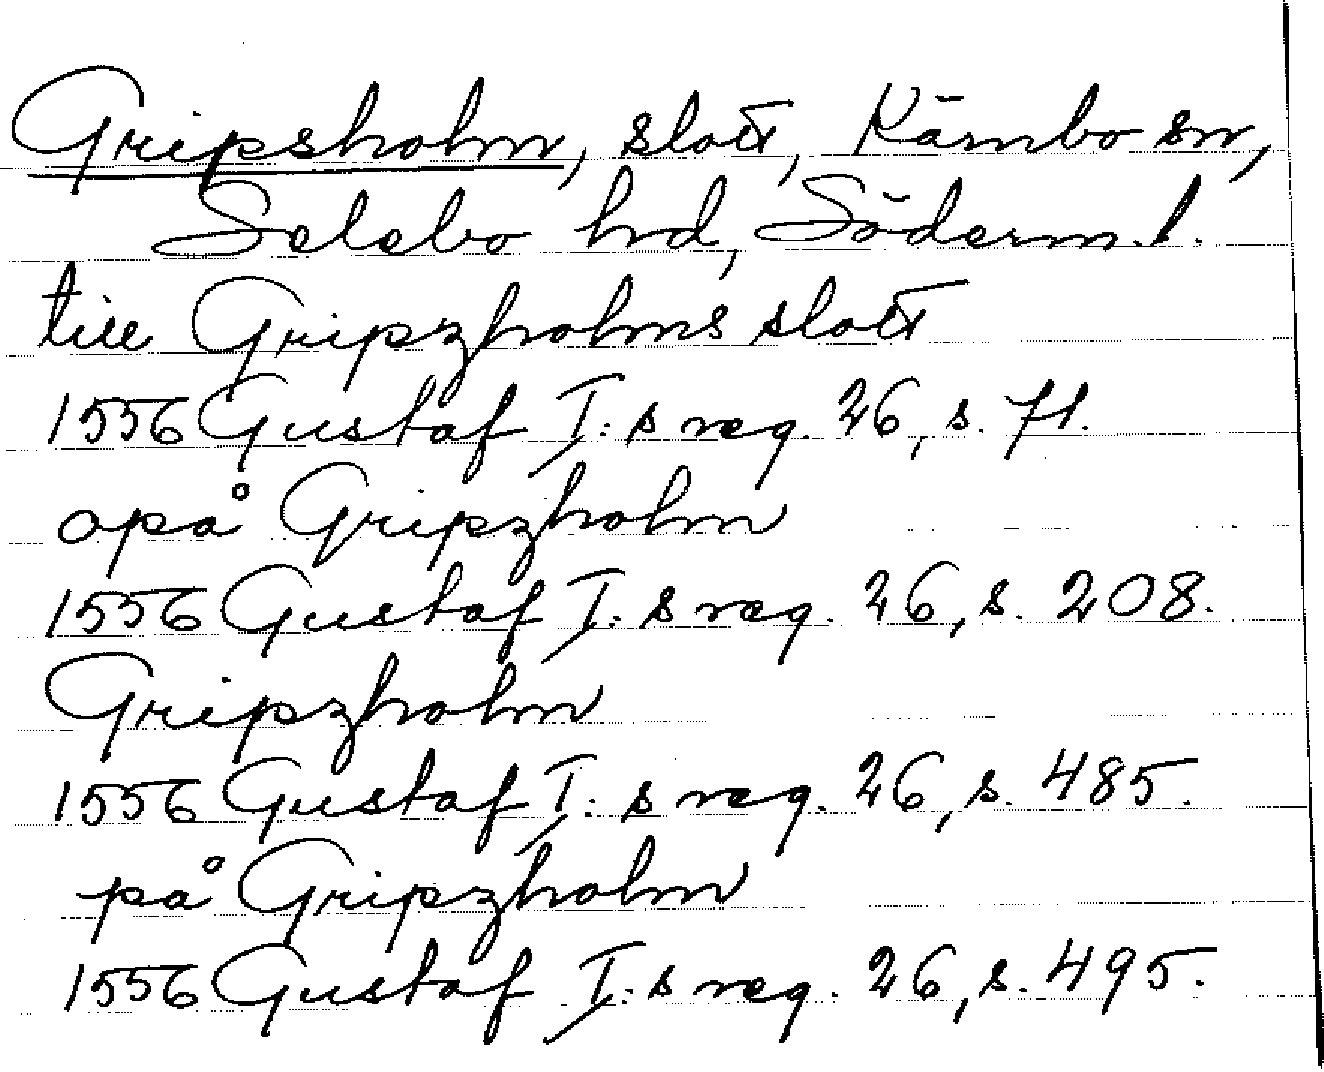 Gripsholm, slott, Kärnbo sn,
Selebo hrd, Söderm. l.
till Gripzholms slott
1556 Gustaf I:s reg. 26, s. 71.
opå Gripzholm
1556 Gustaf I:s reg. 26, s. 208.
Gripzholm
1556 Gustaf I:s reg. 26, s. 485.
på Gripzholm
1556 Gustaf I:s reg. 26, s. 495.